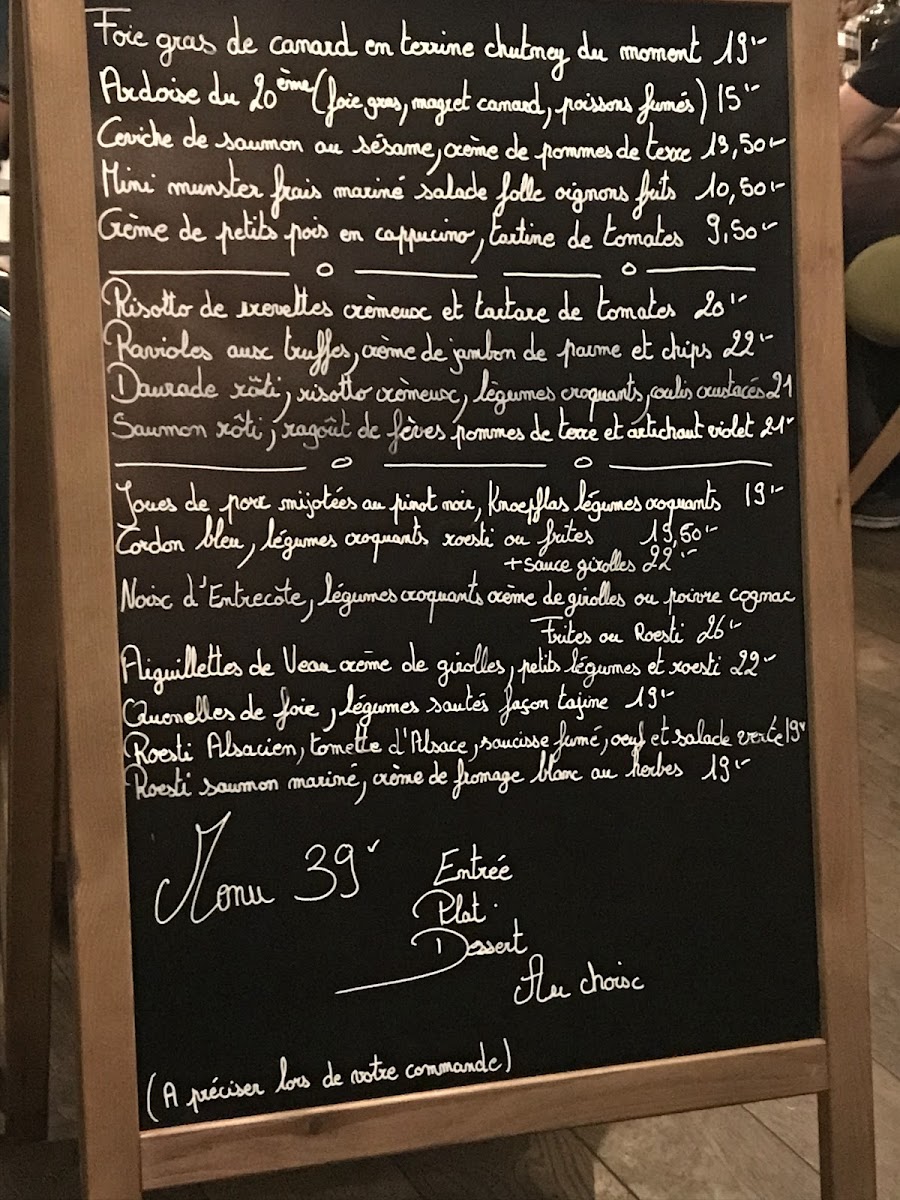 Foie gras de canard en terrine chutney du moment 19,-
Ardoise du 20ème (foie gras, magret canard, poissons fumés) 15,-
Ceviche de saumon au sésame, crème de pommes de terre 13,50,-
Mini munster frais mariné salade folle oignons frits 10,50,-
Crème de petits pois en cappucino, tartine de tomates 9,50,-
Risotto de crevettes crèmeux et tartare de tomates 20,-
Ravioles aux truffes, crème de jambon de parme et chips 22,-
Daurade rôti, risotto crèmeux, légumes croquants, coulis crustacés 21
Saumon rôti, ragoût de fèves pommes de terre et artichaut violet 21,-
Joues de porc mijotées au pinot noir, Knoepflas légumes croquants 19,-
Cordon bleu, légumes croquants roesti ou frites 19,50,-
+ sauce girolles 22,-
Noisc d'Entrecôte, légumes croquants crème de girolles ou poivre cognac
Frites ou Roesti 26,-
Aiguillettes de Veau crème de girolles, petits légumes et roesti 22,-
Quenelles de foie, légumes sautés façon tajine 19,-
Roesti Alsacien, tomette d'Alsace, saucisse fumé, oeuf et salade verte 19,-
Roesti saumon mariné, crème de fromage blanc au herbes 19,-
Menu 39,-
Entrée
Plat
Dessert
Au choix
(A préciser lors de votre commande)